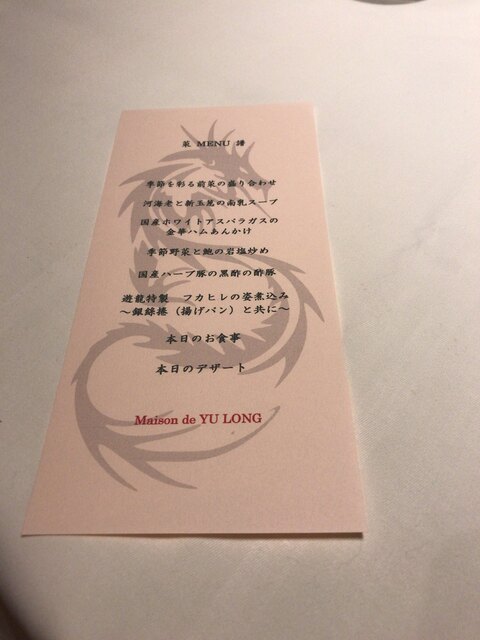 菜 MENU 譜
季節を彩る前菜の盛り合わせ
河海老と新玉葱の南乳スープ
国産ホワイトアスパラガスの
金華ハムあんかけ
季節野菜と鮑の岩塩炒め
国産ハーブ豚の黒酢の酢豚
遊龍特製　フカヒレの姿煮込み
～銀絲捲（揚げパン）と共に～
本日のお食事
本日のデザート
Maison de YU LONG